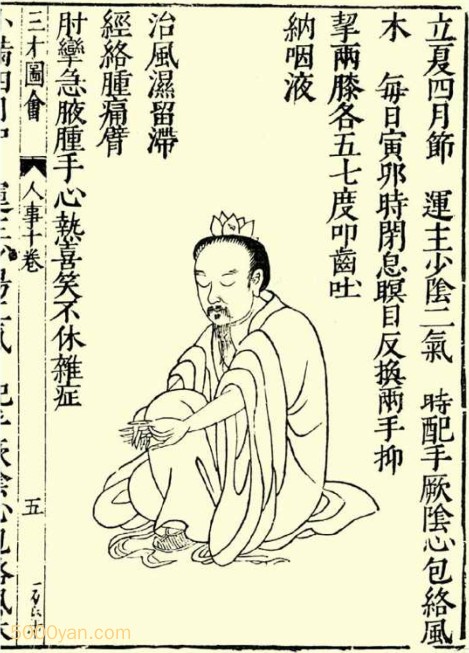 立夏四月節　運主少陰二氣　時配手厥陰心包絡風
木　每日寅夘時閉息瞑目反換兩手抑
掣兩膝各五七度叩齒吐
納咽液
治風濕留滯
經絡腫痛臂
肘攣急腋腫手心熱喜笑不休雜症
三才圖會　人事十卷　五
5000yan.com